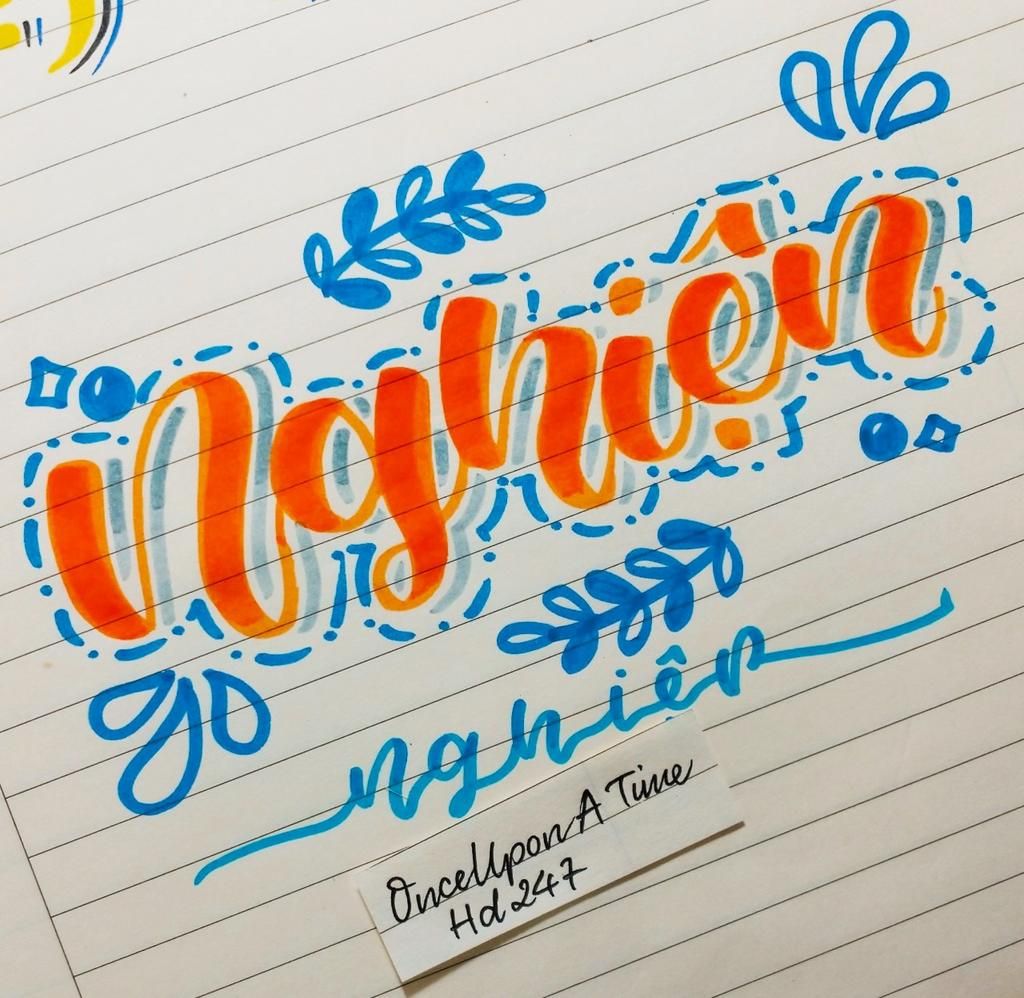 Nghiện
nghiện
OnceUpon A Time
Hd 247